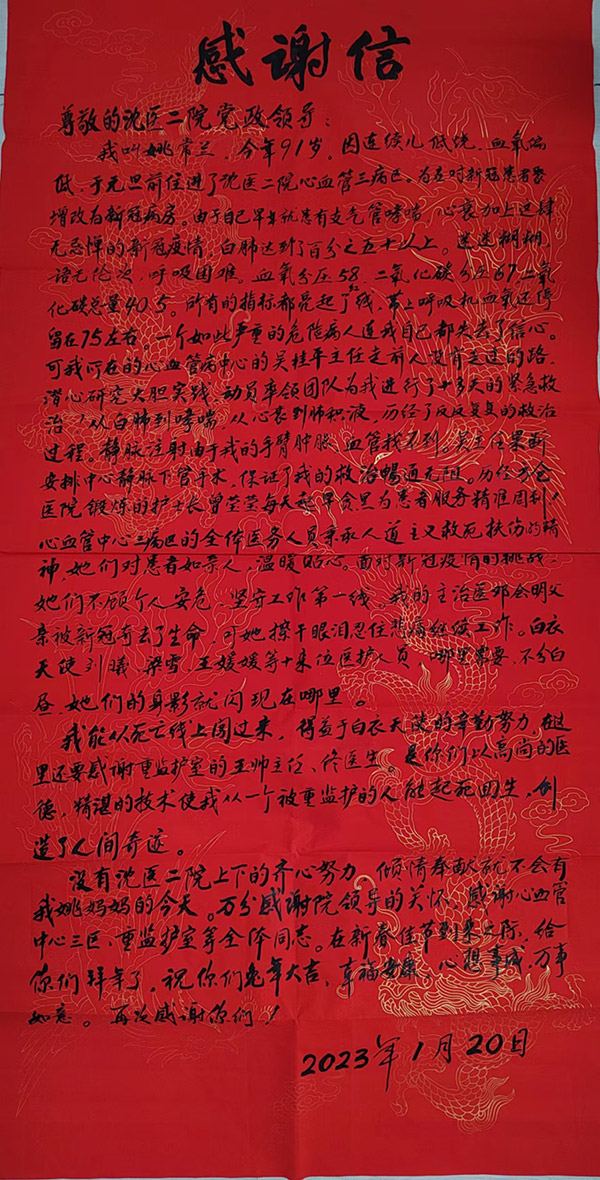 感谢信
尊敬的沈医二院党政领导：
我叫姚常兰，今年91岁。因连续几低烧，血氧偏
低，于元旦前住进了沈医二院心血管三病区。为应对新冠患者聚
增改为新冠病房。由于自己早年就患有支气管哮喘，心衰加上这肆
无忌惮的新冠疫情，白肺达到了百分之五十以上。迷迷糊糊，
语无伦次，呼吸困难。血氧分压58，二氧化碳分压67，二氧
化碳总量40.5。所有的指标都亮起了红线，带上呼吸机血氧还停
留在75左右。一个如此严重的危险病人连我自己都失去了信心。
可我所在的心血管病中心的吴桂平主任走前人没有走过的路，
潜心研究大胆实践，动员率领团队为我进行了十多天的紧急救
治，从白肺到哮喘，从心衰到肺积液，历经了反反复复的救治
过程。静脉注射由于我的手臂肿胀，血管找不到。吴主任果断
安排中心静脉下管手术，保证了我的救治畅通无阻。历经方仓
医院锻炼的护士长曾莹莹每天起早贪黑为患者服务精准周到！
心血管中心三病区的全体医务人员秉承人道主义救死扶伤的精
神，她们对患者如亲人，温暖贴心。面对新冠疫情的挑战，
她们不顾个人安危，坚守工作第一线。我的主治医郊会明父
亲被新冠夺去了生命，可她擦干眼泪忍住悲痛继续工作。白衣
天使刘曦、梁雪、王媛媛等十来位医护人员，哪里需要，不分白
昼，她们的身影就闪现在哪里。
我能从死亡线上闯过来，得益于白衣天使的辛勤努力，在这
里还要感谢重监护室的王帅主任、佟医生，是你们以高尚的医
德，精湛的技术使我从一个被重监护的人能起死回生，创
造了人间奇迹。
没有沈医二院上下的齐心努力，倾情奉献就不会有
我姚妈妈的今天。万分感谢院领导的关怀，感谢心血管
中心三区、重监护室等全体同志。在新春佳节到来之际，给
你们拜年了。祝你们兔年大吉，幸福安康，心想事成，万事
如意。再次感谢你们！
2023年1月20日